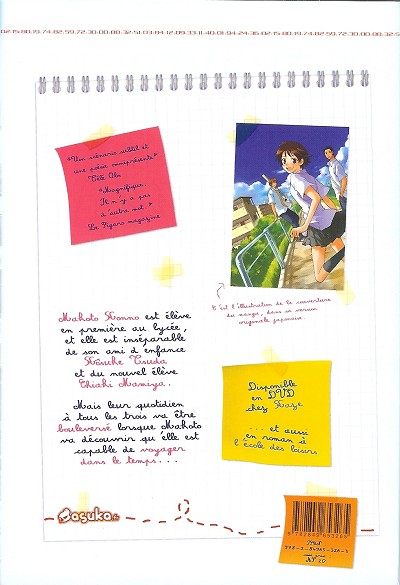 02-15-80-19-74-82-59-72-30-00-00-32-51-03-84
"Un scénario subtil et
une poésie omniprésente"
Télé Obs
"Magnifique.
Il n'y a pas
d'autre mot."
Le Figaro magazine
C'est l'illustration de la couverture
du manga, dans sa version
originale japonaise.
Makoto Konno est élève
en première au lycée,
et elle est inséparable
de son ami d'enfance
Kôsuke Tsuda
et du nouvel élève
Chiaki Mamiya.
Mais leur quotidien
à tous les trois va être
bouleversé lorsque Makoto
va découvrir qu'elle est
capable de voyager
dans le temps...
Disponible
en DVD
chez Kaze
... et aussi
en roman à
l'école des loisirs
asuka.fr